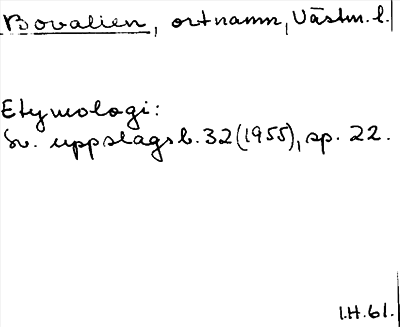 Bovallen, ortnamn, Västm. l.
Etymologi:
Sv. uppslagsb. 32 (1955), sp. 22.
I.H.61.